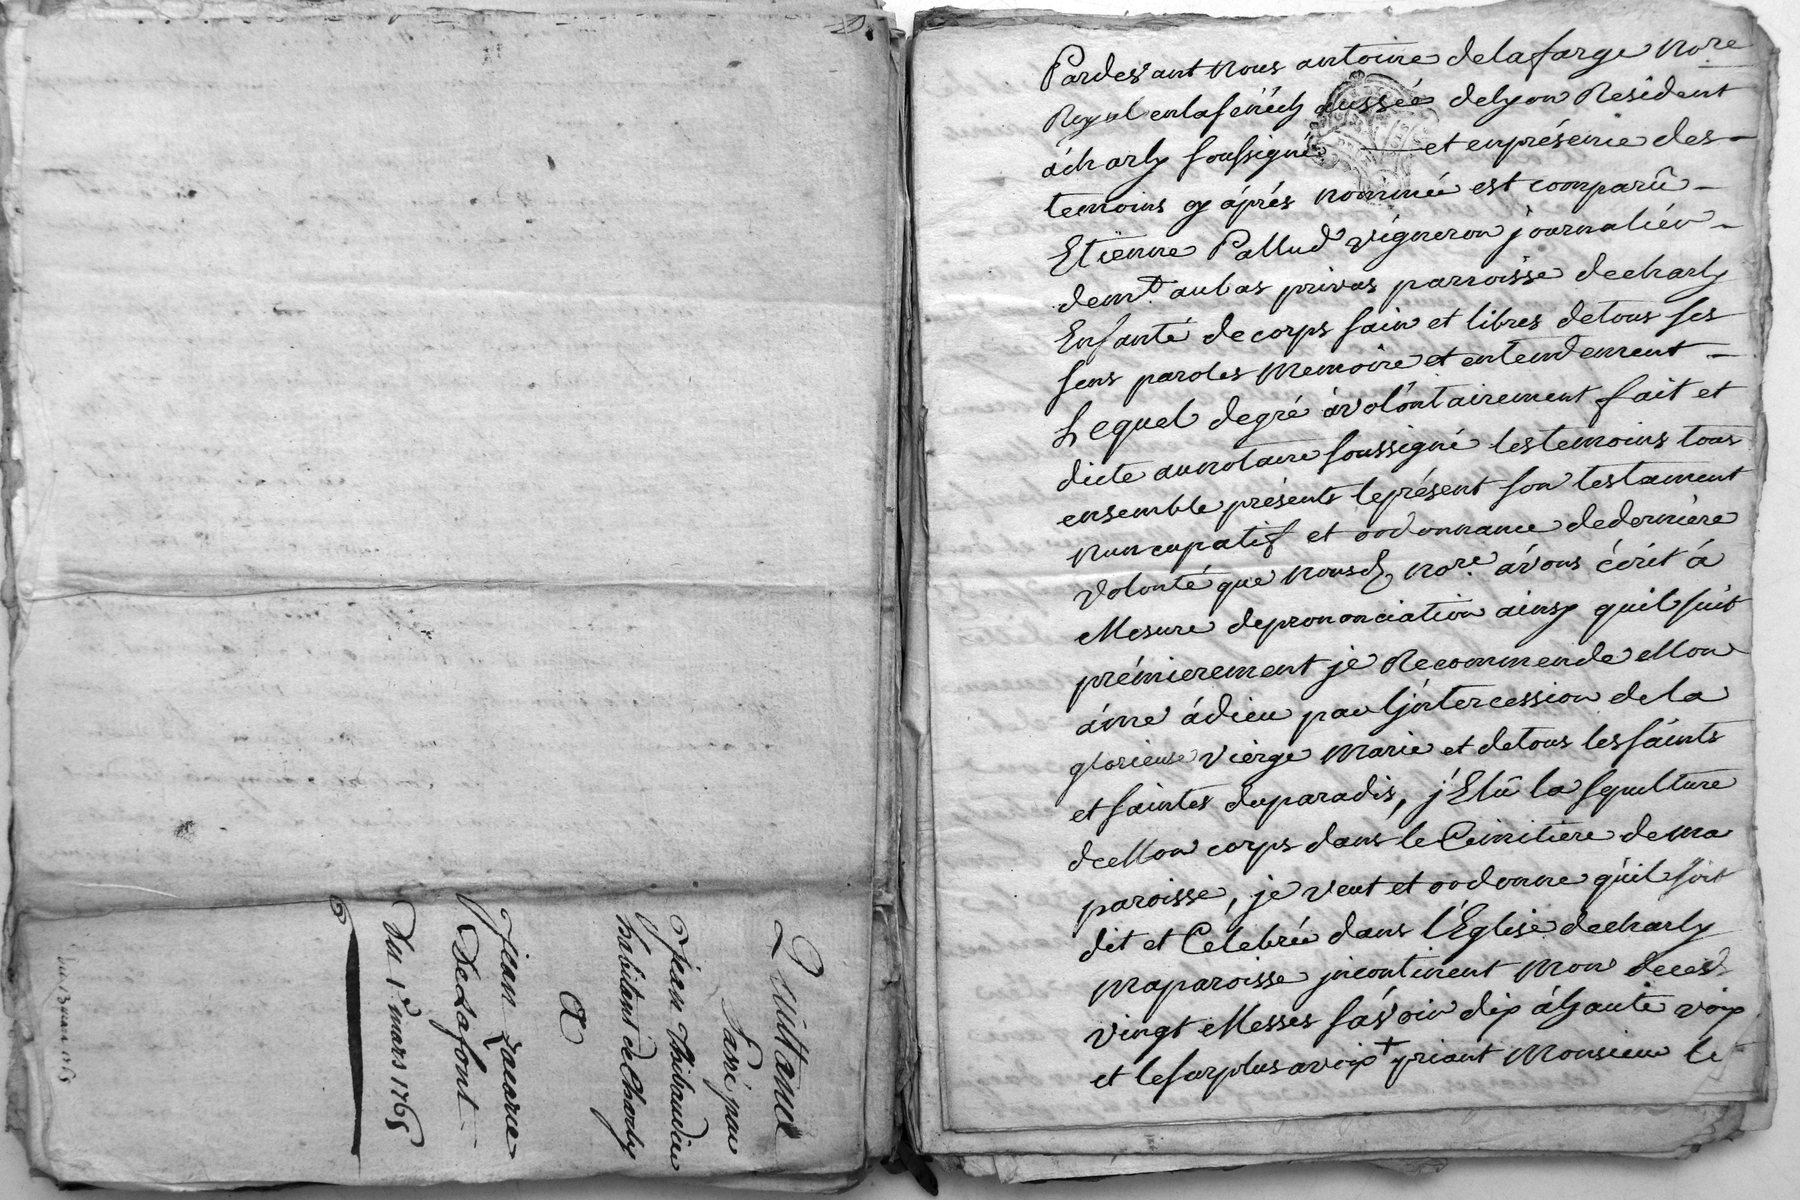 Quittance
Passé par
Jean Thibaudier
habitant de Charly
A
Jean Zacarie
Delafont
Du 1r mars 1765
Pardevant nous antoine delafarge nore
Royal en la sénéch aussée delyon Résident
à charly soussigné et en présence des
temoins cy áprés nommée est comparû
Etiënne Pallud vigneron journaliér
demt. au bas privas parroisse decharly
Enfanté decorps sain et libres detous ses
sens paroles memoire et entendement
Lequel degré à volóntairement fait et
dicte aunotaire soussigné les temoins tous
ensemble présents leprésent son testament
nuncupatif et ordonnance dedernière
volonté que nousd. nore. ávons écrit á
Mesure deprononciation ainsy quil suit
prémierement je Recommende Mon
áme ádieu par l'jntercession de la
glorieuse vierge Marie et detous lessaints
et saintes duparadis, j'Elû la sepulture
deMon corps dans le Cimitière dema
paroisse, je veut et ordonne qúil soit
dit et Célebrée dans l'Eglise decharly
maparoisse jncontinent mon deces
vingt Messes sávoir dix áhaute voix
et lesurplus avoix + priant Monsieur le